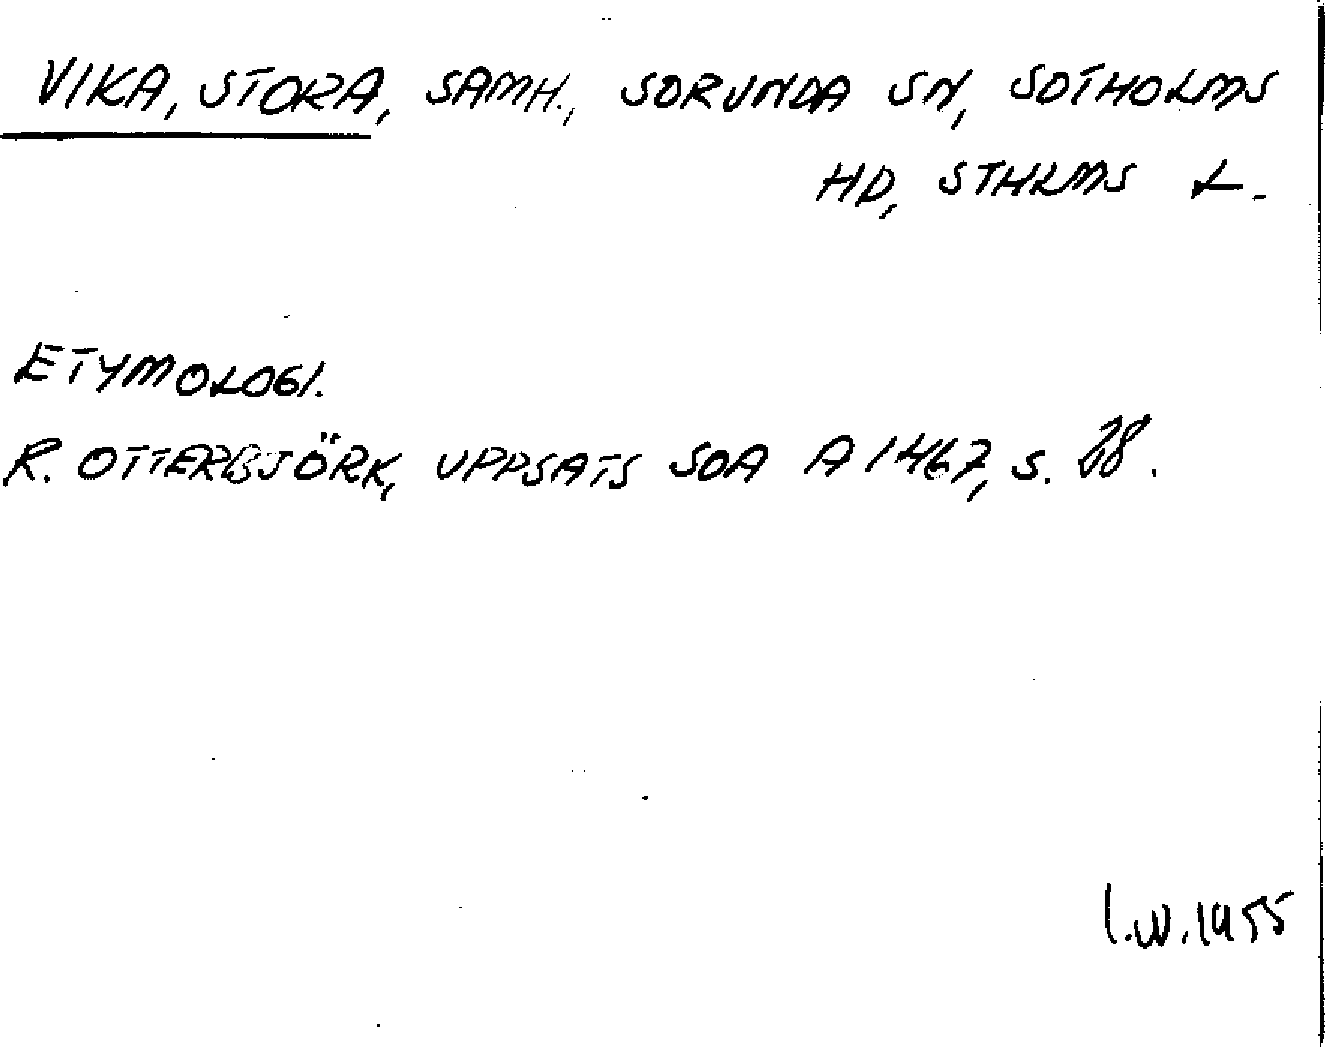 VIKA, STORA, SAMH., SORUNDA SN, SOTHOLMS
HD, STHLMS L.
ETYMOLOGI.
R. OTTERBJÖRK, UPPSATS SOA A 1467, S. 28.
I.W. 1955